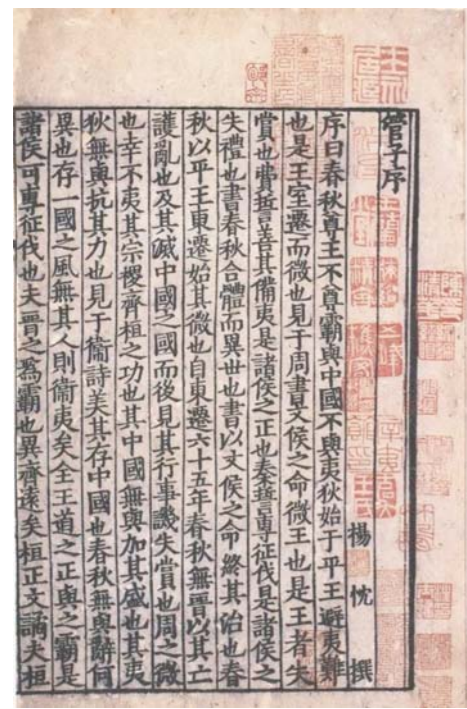 管子序
楊忱撰
序曰春秋尊王不尊霸與中國不與夷狄始于平王避夷難
也是王室遷而微也見于周書文侯之命微王也是王者失
賞也費誓善其備夷是諸侯之正也秦誓專征伐是諸侯之
失禮也書春秋合體而異世也書以文侯之命終其治也春
秋以平王東遷始其微也自東遷六十五年春秋無晉以其亡
護亂也及其滅中國之國而後見其行事譏失賞也周之微
也幸不夷其宗稷齊桓之功也其中國無與加其盛也其夷
狄無與抗其力也見于衛詩美其存中國也春秋無與辭何
異也存一國之風無其人則衛夷矣全王道之正與之霸是
諸侯可專征伐也夫晉之爲霸也異齊遠矣桓正文譎夫桓